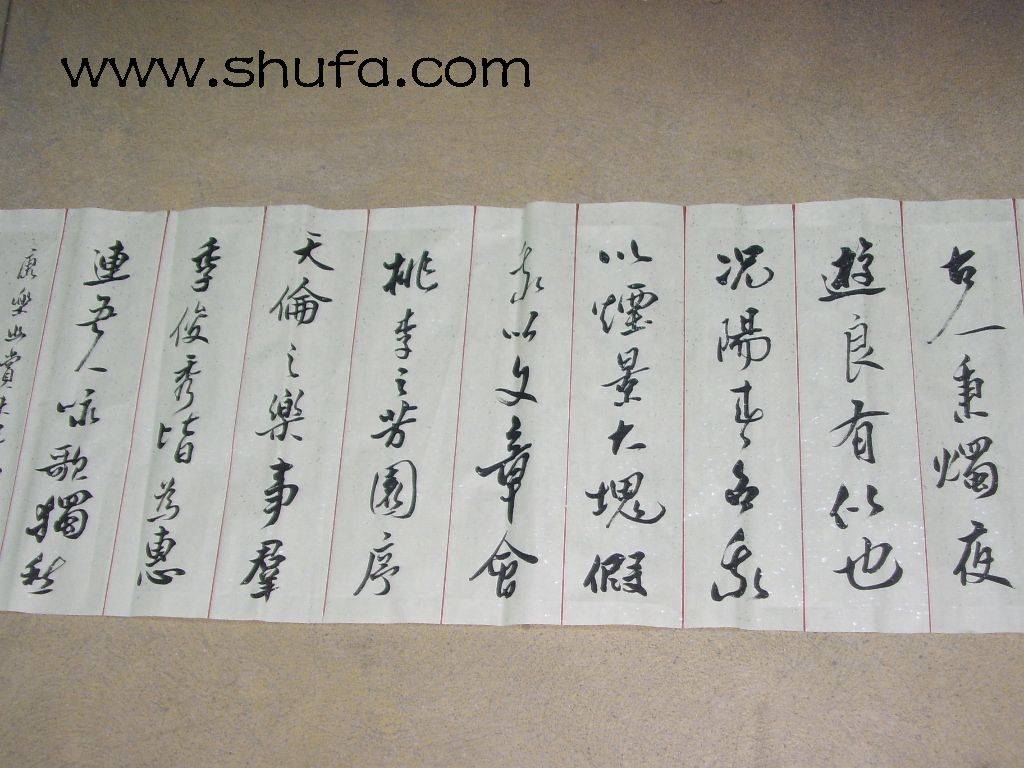 www.shufa.com
古人秉燭夜
遊良有以也
況陽春召我
以煙景大塊假
我以文章會
桃李之芳園序
天倫之樂事羣
季俊秀皆為惠
連吾人詠歌獨慙
康樂幽賞未